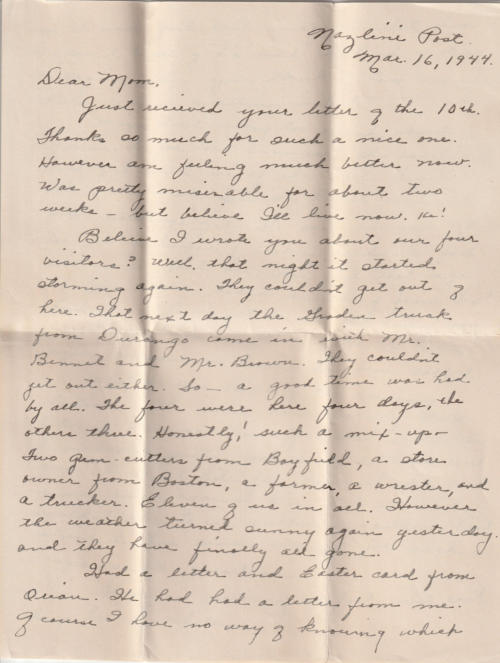 Nazlini Post.
Mar. 16, 1944.
Dear Mom,
Just recieved your letter of the 10th.
Thanks so much for such a nice one.
However am feeling much better now.
Was pretty miserable for about two
weeks – but believe I'll live now.
Believe I wrote you about our four
visitors? Well, that night it started
storming again. They couldn't get out of
here. That next day the truck
from Durango come in with Mr.
Bennet and Mr. Brown. They couldn't
get out either. So – a good time was had
by all. The four were here four days, the
others three. Honestly! such a mix-up –
Two gem-cutters from Bayfield, a store
owner from Boston, a farmer, a wrester, and
a trucker. Eleven of us in all. However
the weather turned sunny again yesterday.
and they have finally all gone.
Had a letter and Easter card from
He had had a letter from me.
Of course I have no way of knowing which